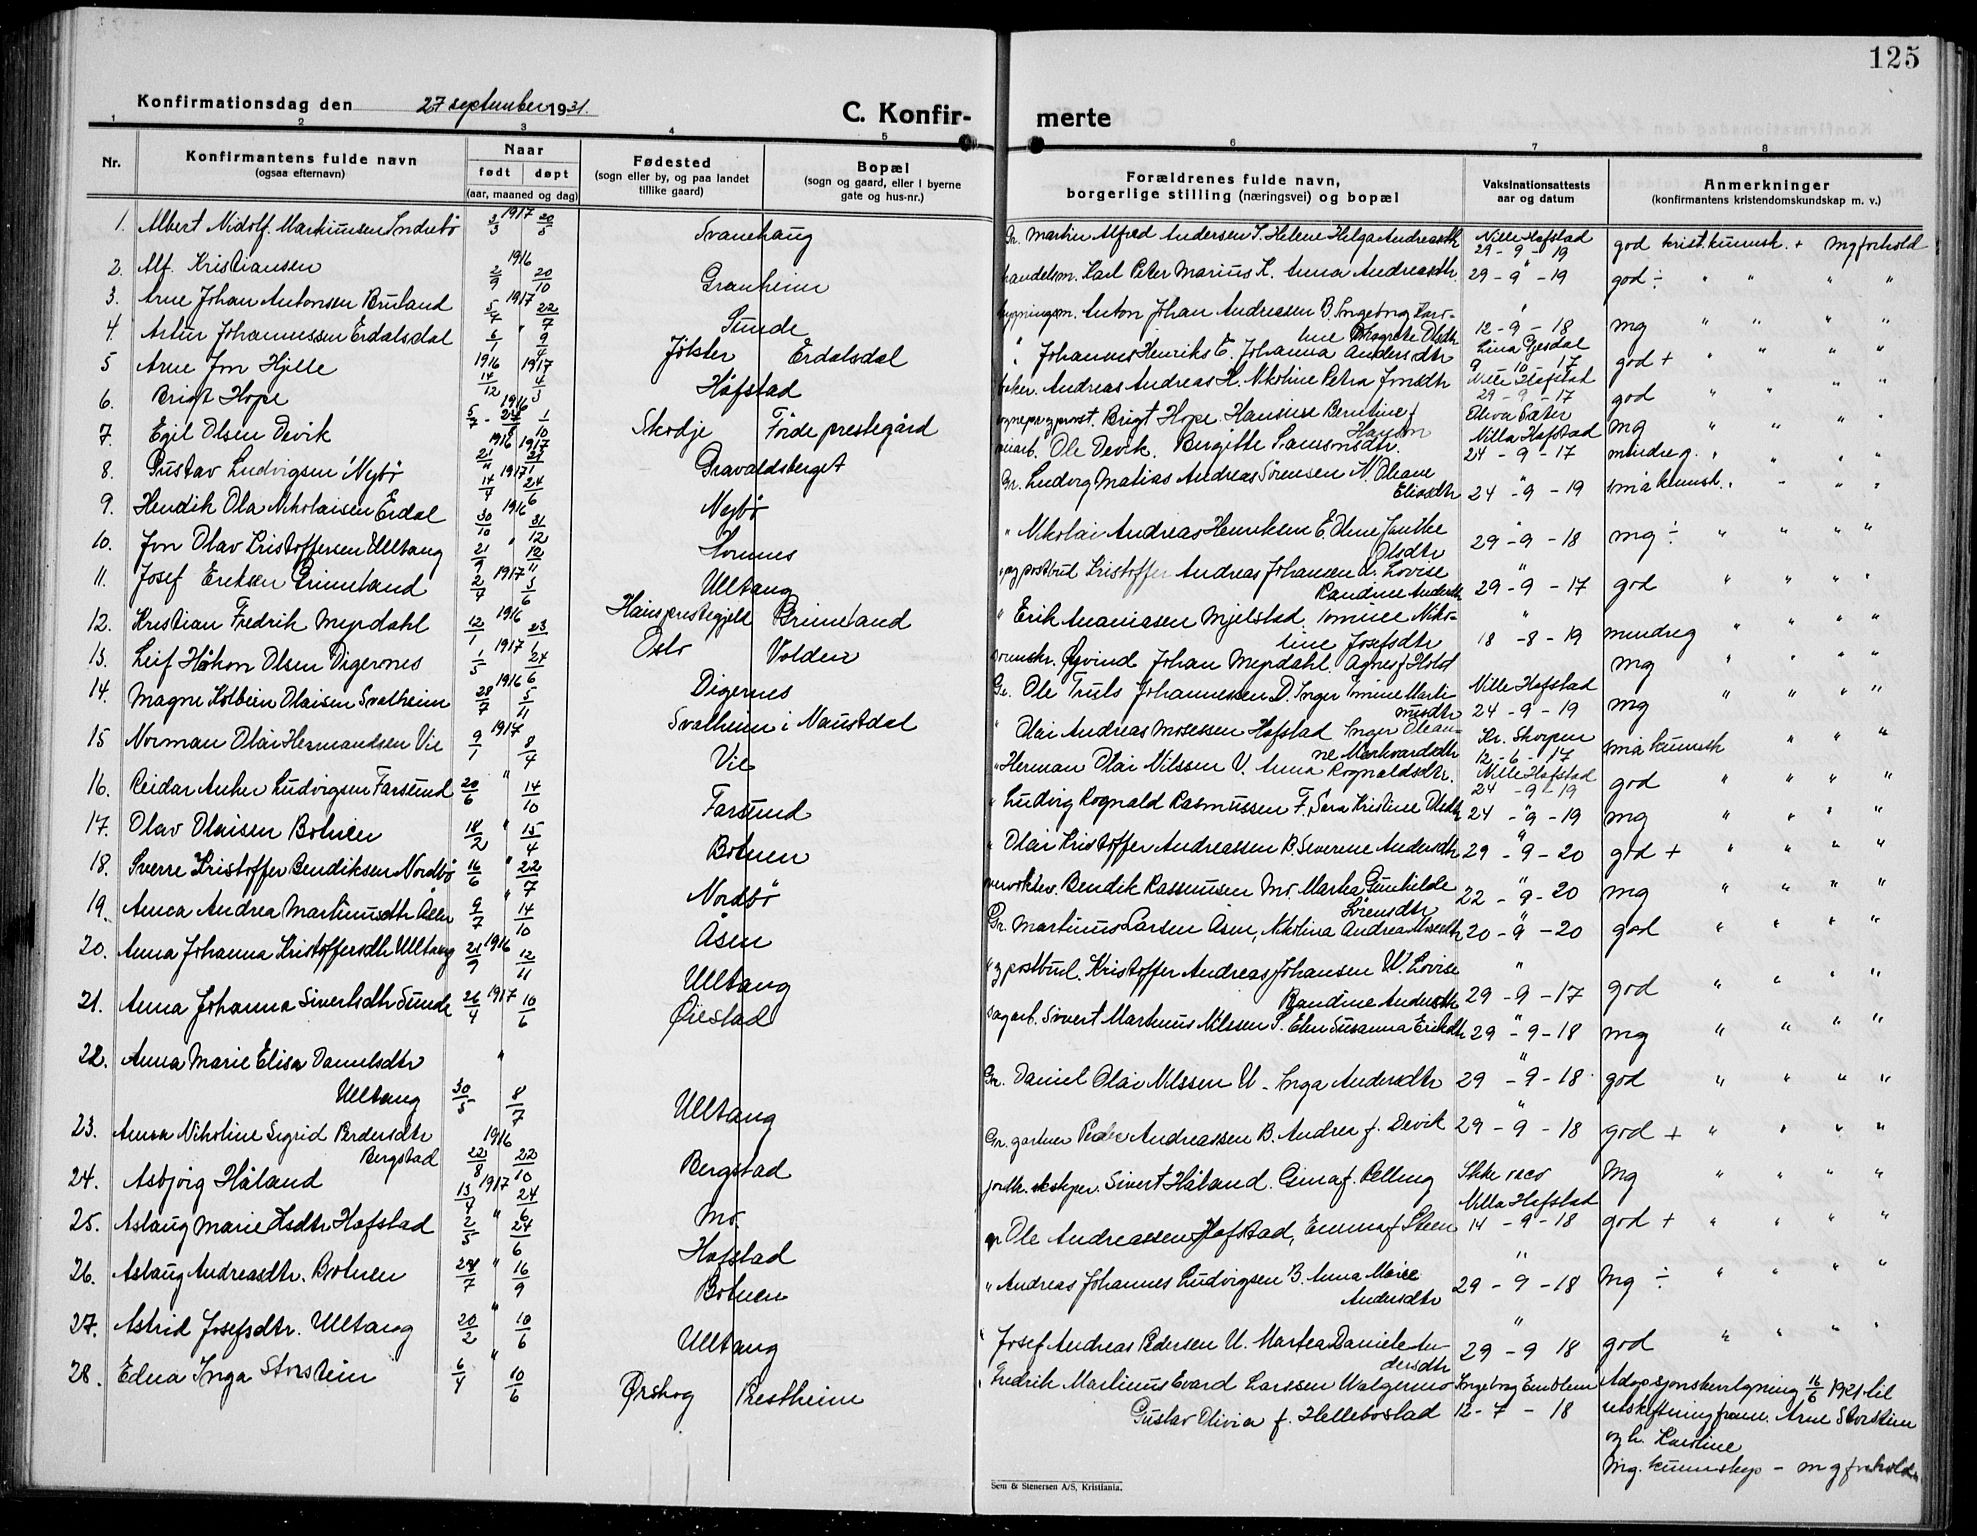 125
Konfirmationsdag den 27 september 1931.
C. Konfirmerte
1 2 3 4 5 6 7 8
Nr.
Konfirmantens fulde navn
(ogsaa efternavn)
Naar
født døpt
(aar, maaned og dag)
Fødested
(sogn eller by, og paa landet
tillike gaard)
Bopæl
(sogn og gaard, eller i byerne
gate og hus-nr.)
Forældrenes fulde navn,
borgerlige stilling (næringsvei) og bopæl
Vaksinationsattests
aar og datum
Anmerkninger
(konfirmantens kristendomskundskap m. v.)
1. Albert Nidolf Martinusen Indrebø 3/3 1917 20/5 Svanehaug Gr. Martin Alfred Andersen I. Helene Helga Andreasdtr Nille Hafstad 29-9-19 god krist. kunnsk. + mg forhold
2. Alf Kristiansen 1916 2/9 20/10 Granheim handelsm. Karl Peter Marius K. Anna Andreasdtr 29-9-19 god ÷ " " " "
3. Arne Johan Antonsen Bruland 1917 5/7 22/7 Sunde Anton Johan Andreasen B. Ingeborg Karoline Margrete Olsdtr " 12-9-18 mg " " " "
4. Artur Johannessen Erdalsdal " 6/1 9/4 Jølster Erdalsdal " Johannes Henriks E. Johanna Andersdtr Lina Gjesdal 9 10 17 god + " " " "
5 Arne Jon Hjelle 1916 14/12 1917 4/3 Hafstad baker. Andreas Andreas H. Nikoline Petra Jonsdtr Nille Hafstad 29-9-17 god " " " "
6. Brigt Hope 5/7 - 1916 1/10 Skodje Førde prestegård Brigt Hope. Hansine Berntine f. Hanson Oliva Sæter mg " " " "
7. Egil Olsen Devik 1916 21/11 1917 21/1 Gravaldsberget Ole Devik. Bergitte Samsonsdtr. Nilla Hafstad 24-9-17 mindre g. " " " "
8. Gustav Ludvigsen Nybø 14/4 1917 24/6 Nybø Gr. Ludvig Matias Andreas Sørensen N. Oleane Eliasdtr " 24-9-19 små kunnsk. " " " "
9. Hendik Ola Nikolaisen Erdal 1916 30/10 31/12 Hornnes " Nikolai Andreas Henriksen E. Oline Jantke Olsdtr " 29-9-18 mg ÷ " " " "
10. Jon Olav Kristoffersen Ulltang 21/9 " 12/11 Ulltang " og postbud Kristoffer Andreas Johansen U. Lovise Randine Andersdtr " 29-9-17 god " " " "
11. Josef Eriksen Grimeland 2/4 1917 3/6 Hans prestegjeld Grimeland " Erik Ananiasen Mjelstad Tomine Nikoline Josefsdtr " 18-8-19 mindre g " " " "
12. Kristian Fredrik Myrdahl 12/1 1916 23/1 Oslo Volden sorenskr. Øyvind Johan Myrdahl. Agnes f Holst mg " " " "
13. Leif Håkon Olsen Digernes 1/5 1917 24/6 Digernes Gr. Ole Truls Johannessen D. Inger Tomine Martinusdtr Nille Hafstad 24-9-19 mg " " " "
14. Magne Kolbein Olaisen Svalheim 28/7 1916 5/11 Svalheim i Naustdal " Olai Andreas Mosessen Hafstad Inger Oleanne Markvardsdtr Kr. Skorpen 12-6-17 små kunnsk " " " "
15 Norman Olai Hermandsen Vie 9/1 1917 8/4 Vie " Herman Olai Nilssen V. Anna Rognaldsdtr. Nille Hafstad 24-9-19 god " " " "
16. Reidar Anker Ludvigsen Farsund 20/6 " 14/10 Farsund " Ludvig Rognald Rasmussen F. Sara Kristine Olsdtr 24-9-19 mg " " " "
17. Olav Olaisen Botnen 18/2 " 15/4 Botnen " Olai Kristoffer Andreassen B. Severine Andersdtr " 29-9-20 god + " " " "
18. Sverre Kristoffer Bendiksen Nordbø 16/6 " 22/7 Nordbø Bendik Rasmusen Mo. Marta Gunhilde Sørensdtr " 22-9-20 mg " " " "
19. Anna Andrea Martinusdtr Åsen 9/7 " 14/10 Åsen Gr. Martinus Larsen Åsen, Nikolina Andrea Mosesdtr " 20-9-20 god " " " "
20. Anna Johanna Kristoffersdtr Ulltang 21/9 1916 12/11 Ulltang " og postbud. Kristoffer Andreas Johansen U. Lovise Randine Andersdtr " 29-9-17 god " " " "
21. Anna Johanna Sivertsdtr Sunde 26/4 1917 10/6 Øiestad sagarb. Sivert Martinus Nilssen S. Elen Susanna Eriksdtr " 29-9-18 mg " " " "
22. Anna Marie Elisa Danielsdtr Ulltang 30/5 " 8/7 Ulltang Gr. Daniel Olai Nilssen U - Inga Andersdtr " 29-9-18 god " " " "
23. Anna Nikoline Sigrid Pedersdtr Bergstad 1916 22/8 22/10 Bergstad Gr. gartner Peder Andreassen B. Andrea f. Devik " 29-9-18 god + " " " "
24. Asbjørg Håland 13/4 1917 24/6 Mo. Sivert Håland. Gina f. Relling Ikke vacs Mg " " " "
25. Aslaug Marie Olsdtr Hafstad 2/5 " 24/6 Hafstad gr Ole Andreassen Hafstad, Emma f Steen Nilla Hafstad 14-9-18 god + " " " "
26. Aslaug Andreasdtr. Botnen 28/7 " 16/9 Botnen " Andreas Johannes Ludvigsen B. Anna Marie Andersdtr " 29-9-18 Mg ÷ " " " "
27. Astrid Josefsdtr. Ulltang 20/2 " 10/6 Ulltang " Josef Andreas Pedersen U. Martea Daniele Andersdtr " 29-9 18 god " " " "
28. Edna Inga Storstein 6/4 " 10/6 Ørskog Prestheim " Fredrik Martinus Evard Larssen Walgermo Gustav Olivia f. Hellebostad Ingeborg Emblem 12-7-18 Adopsjonsbevilgning 16/6 1921 til
utskiftningsform. Arne Storstein
og h. Karoline
Mg. kunnskap - mg forhold
Sem & Stenersen A/S, Kristiania.